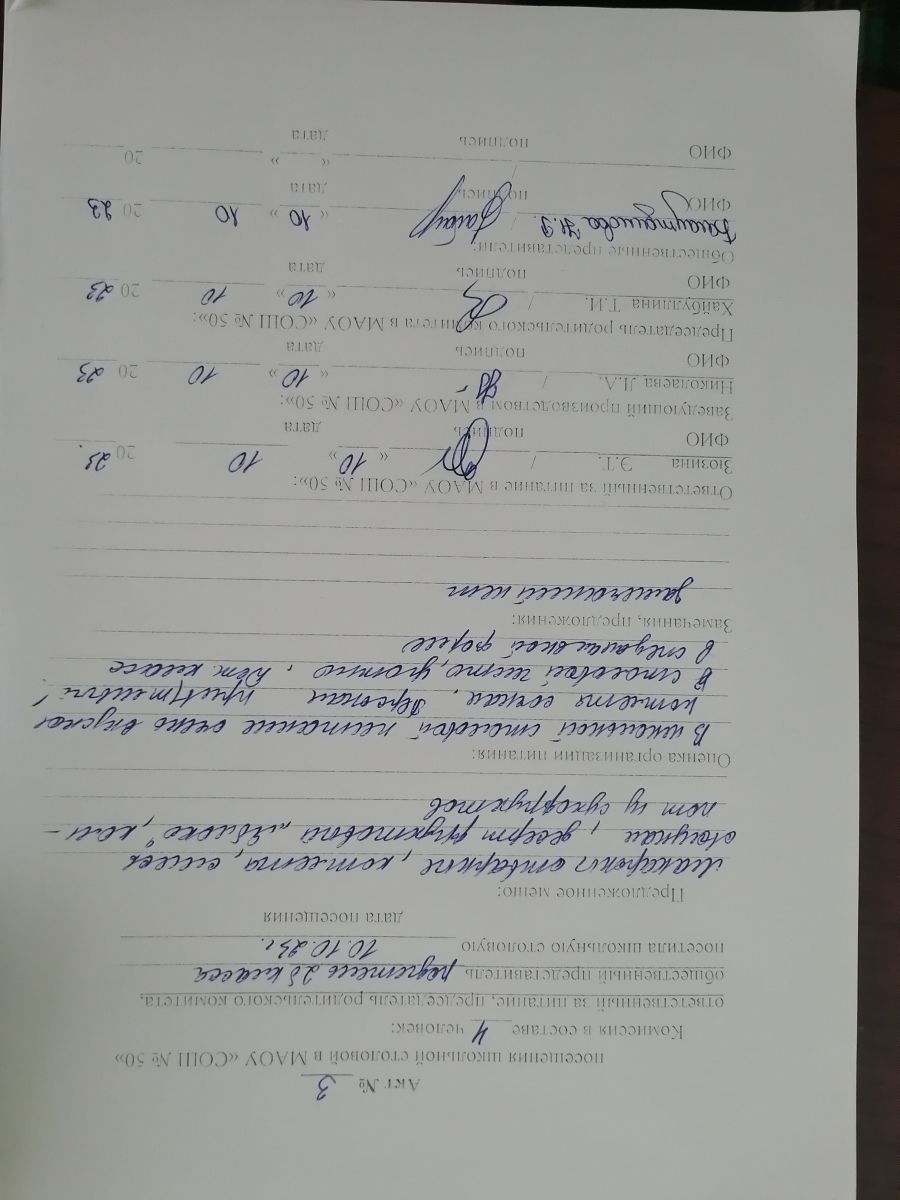 Акт № 3
посещения школьной столовой в МАОУ «СОШ № 50»
Комиссия в составе 4 человек:
ответственный за питание, председатель родительского комитета,
общественный представитель родители 2б класса
посетила школьную столовую 10.10.23г.
дата посещения
Предложенное меню:
макароны отварные, котлета, смесь
овощная, десерт фруктовый „яблоко", ком-
пот из сухофруктов
Оценка организации питания:
В школьной столовой питание очень вкусное
котлета сочная, Персонал приветливый!
В столовой чисто, уютно,
в специальной форме
Замечания, предложения:
замечаний нет
Ответственный за питание в МАОУ «СОШ № 50»:
Зюзина Э.Т. / « 10 » 10 20 23.
ФИО подпись дата
Заведующий производством в МАОУ «СОШ № 50»:
Николаева Л.А. / « 10 » 10 20 23
ФИО подпись дата
Председатель родительского комитета в МАОУ «СОШ № 50»:
Хайбуллина Т.И. / « 10 » 10 20 23
ФИО подпись дата
Общественные представители:
/ « 10 » 10 20 23
ФИО подпись дата
/ « » 20
ФИО подпись дата